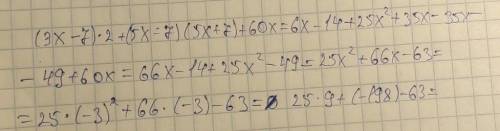 (3x-7)·2+(5x-7)(5x+7)+60x=6x-14+25x²+35x-35x-
-49+60x=66x-14+25x²-49=25x²+66x-63=
=25·(-3)²+66·(-3)-63= 25·9+(-198)-63=